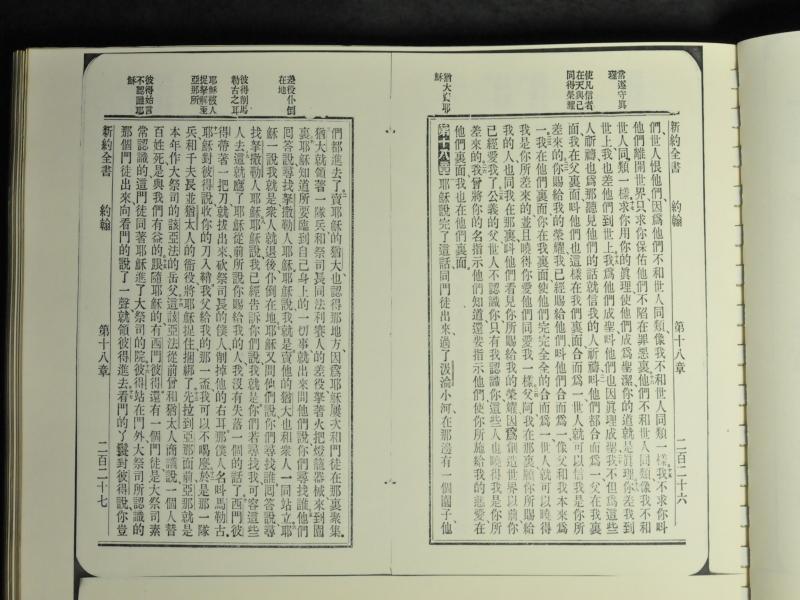 常遂守真理
使凡信者在天與己同得榮耀
猶大負耶穌
新約全書 約翰 第十八章 二百二十六
們世人恨他們因爲他們不和世人同類像我不和世人同類一樣我不求你叫
他們離開世界只求你保佑他們不陷在罪惡裏他們不和世人同類像我不和
世人同類一樣求你用你的眞理使他們成爲聖潔你的道就是眞理你差我到
世上我也差他們到世上我爲他們成聖叫他們也因眞理成聖我不但爲這些
人祈禱也爲那聽見他們的話就信我的人祈禱叫他們都合而爲一父在我裏
面我在父裏面叫他們也這樣在我們裏面合而爲一世人就可以信我是你所
差來的你賜給我的榮耀我已經賜給他們叫他們合而爲一像父和我本來爲
一我在他們裏面你在我裏面使他們完完全全的合而爲一世人就可以曉得
我是你所差來的並且曉得你愛他們同愛我一樣父阿我在那裏願你所賜給
我的人也同我在那裏叫他們看見你所賜給我的榮耀因爲創造世界以前你
已經愛我了公義的父世人不認識你只有我認識你這些人也曉得我是你所
差來的我曾將你的名指示他們知道還要指示他們使你所施給我的慈愛在
他們裏面我也在他們裏面
第十八章耶穌說完了這話同門徒出來過了汲淪小河在那邊有一個園子他
差役仆倒在地
彼得削馬勒古之耳
耶穌被人捉拏解至亞那所
彼得始言不認識耶穌
們都進去了賣耶穌的猶大也認得那地方因爲耶穌屢次和門徒在那裏聚集
猶大就領著一隊兵和祭司長同法利賽人的差役拏著火把燈籠器械來到園
裏耶穌知道所要臨到自己身上的一切事就出來問他們說你們尋找誰他們
回答說尋找拏撒勒人耶穌耶穌說我就是賣他的猶大也和衆人一同站立耶
穌一說我就是衆人就退後仆倒在地耶穌又問他們說你們尋找誰回答說尋
找拏撒勒人耶穌耶穌說我已經告訴你們說我就是你們若尋找我可容這些
人去這就應了耶穌從前所說你賜給我的人我沒有失落一個的話了西門彼
得帶著一把刀就拔出來砍祭司長的僕人削掉他的右耳那僕人名叫馬勒古
耶穌對彼得說收你的刀入鞘我父給我的那一盃我可以不喝麼於是那一隊
兵和千夫長並猶太人的衙役將耶穌捉住捆綁了先拉到亞那面前亞那就是
本年作大祭司的該亞法的岳父這該亞法從前曾和猶太人商議說一個人替
百姓死是與我們有益的跟隨耶穌的有西門彼得還有一個門徒是大祭司素
常認識的這門徒同著耶穌進了大祭司的院彼得站在門外大祭司所認識的
那個門徒出來向看門的說了一聲就領彼得進去看門的丫鬟對彼得說你豈
新約全書 約翰 第十八章 二百二十七